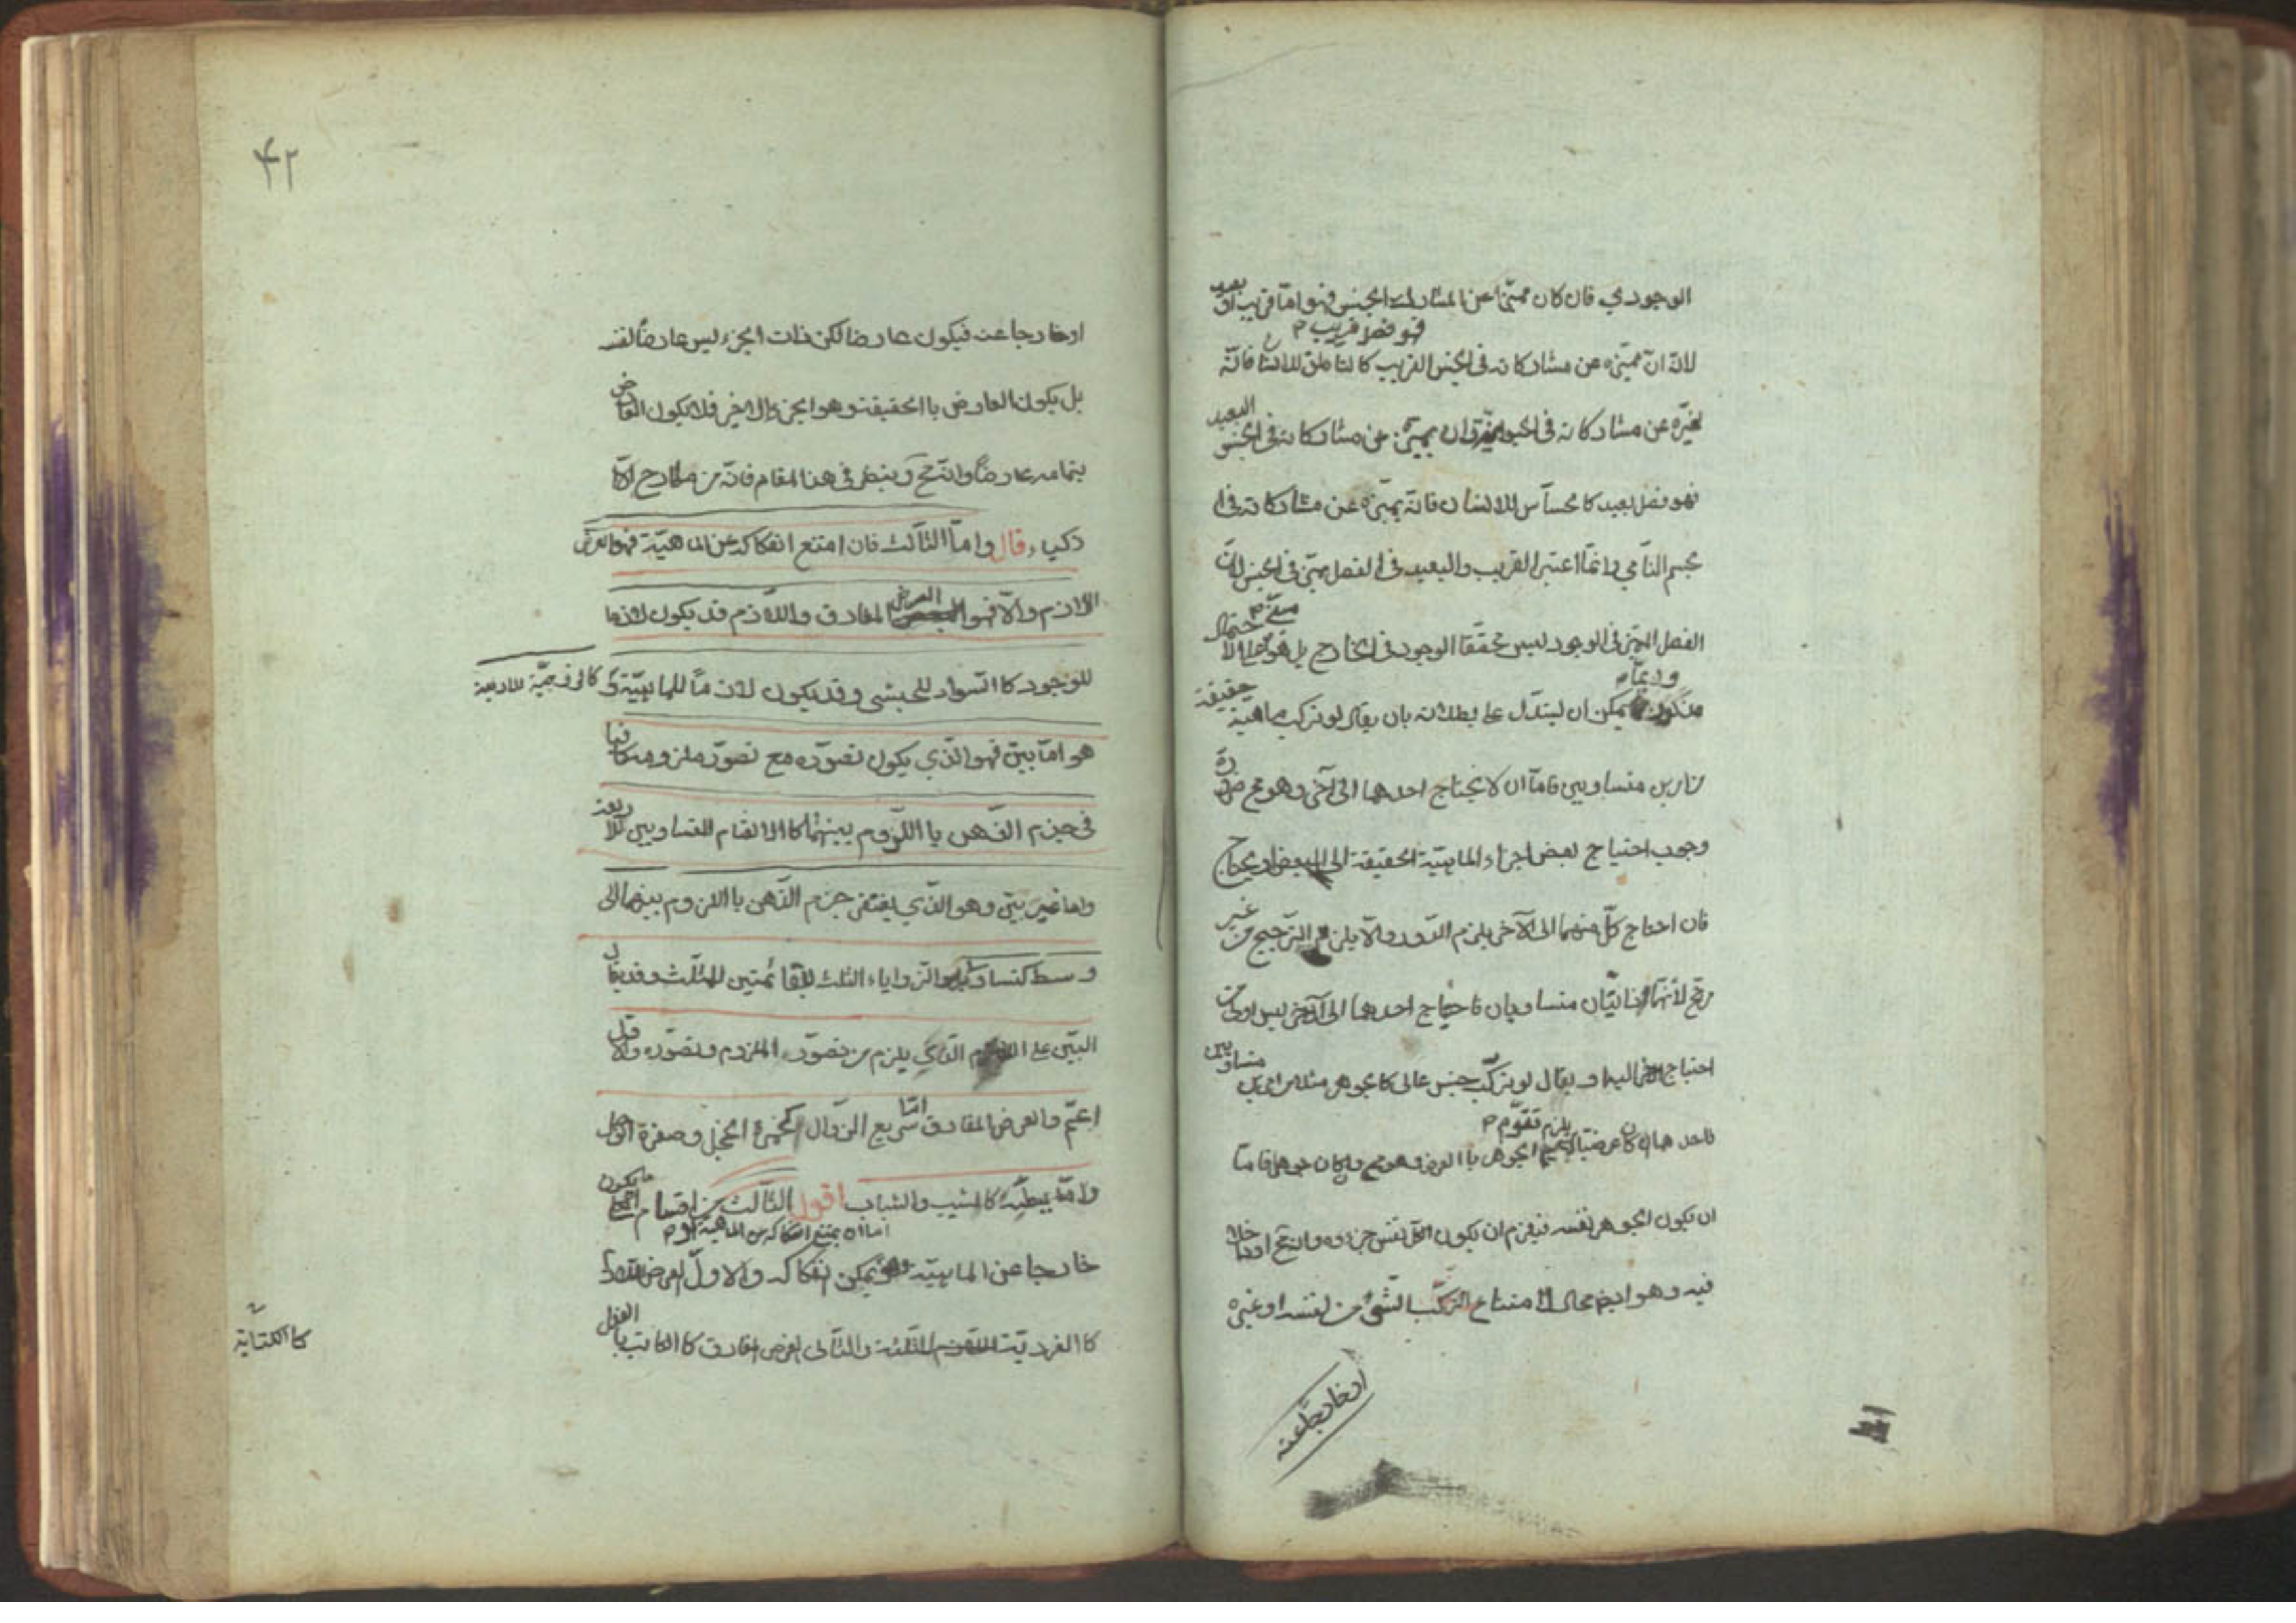 الوجودي فان كان مميزا عن المشارك الجنس فهو اما قريب او بعيد
فهو فصل قريب م
لانه ان ميزه عن مشاركاته في الجنس القريب كالناطق للانسا فانه
يميزه عن مشاركاته في وان يميزه عن مشاركاته في الجنس البعيد
فهو فصل بعيد كالحساس للانسان فانه يميزه عن مشاركاته في ا
لجسم النامي وانما اعتبر القريب والبعيد في الفصل مميز في الجنس لان
الفصل المميز في الوجود ليس محققا الوجود في الخارج بل هو الاحتمال
وربما م
يمكن ان يستدل على بطلانه بان يقال لو تركب ماهية حقيقة
من امرين متساويين فاما ان لا يحتاج احدهما الى آخر وهو مح ضرورة
وجوب احتياج بعض اجزاء الماهية الحقيقة الى البعض او يحتاج
فان احتاج كل منهما الى الآخر يلزم الدور والا يلزم الترجيح من غير
مرجح لأنهما ذاتيان متساويان فاحتياج احدهما الى الآخر ليس اولى من
احتياج اليه او يقال لو تركب جنس عالى كالجوهر مثلا من امرين متساويين
يلزم تقوم م
فاحدهما ان كان عرضيا الجوهر با العرض وهو مح وان كان جوهرا فاما
ان يكون الجوهر نفسه فيلزم ان يكون الكل نفس جزءه وانه مح او داخلا
فيه وهو ايضا محال لامتناع التركب الشئ من نفسه او غيره
او خارجا عنه
۴۲
او خارجا عنه فيكون عارضا لكن ذات الجزء ليس عارضا لنفسه
بل يكون العارض با الحقيقة وهو الجزء الآخر فلا يكون العارض
بتمامه عارضا وانه مح وينظر في هذا المقام فانه من مطارح الا
ذكياء قال واما الثالث فان امتنع انفكاكه عن الماهية فهو العرض
اللازم والا فهو العرض المفارق واللازم قد يكون لازما
للوجود كا السواد للحبشي وقد يكون لازما للماهية كالزوجية للاربعة
هو اما بين فهو الذي يكون تصوره مع تصور ملزومه كافيا
في جزم الذهن با اللزوم بينهما كا الانقسام المتساويين للاربعة
واما غير بين وهو الذي يفتقر جزم الذهن با اللزوم بينهما الى
وسط كتساوي الزواياء الثلث للقائمتين للمثلث وقد يقال
البين على الذي يلزم من تصوره الملزوم وتصوره والاول
اعم والعرض المفارق اما سريع الزوال كحمرة الخجل وصفرة الوجل
واما بطيئه كا الشيب والشباب اقول الثالث من اقسام ما يكون
اما ان يمتنع انفكاكه عن الماهية او م
خارجا عن الماهية يمكن انفكاكه والاول العرض اللازم
كا الفردية للثلثة والثاني العرض المفارق كا الكاتب بالفعل
كا الكتابة